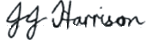 JJ Harrison